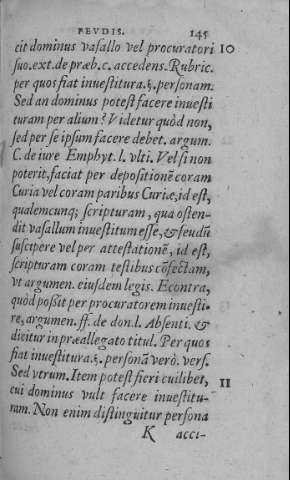 FEVDIS. 145
cit dominus vasallo vel procuratori 10
suo.ext.de præb.c.accedens.Rubric.
per quos fiat inuestitura.§.personam.
Sed an dominus potest facere inuesti
turam per alium? Videtur quòd non,
sed per se ipsum facere debet. argum.
C.de iure Emphyt.l.vlti. Vel si non
poterit, faciat per depositionē coram
Curia vel coram paribus Curiæ, id est,
qualemcunq; scripturam, qua osten-
dit vasallum inuestitum esse, & feudū
suscipere vel per attestationē, id est,
scripturam coram testibus cōfectam,
vt argum. eiusdem legis. Econtra,
quòd possit per procuratorem inuesti-
re, argumen.ff.de don.l. Absenti. &
dicitur in præallegato titul. Per quos
fiat inuestitura.§. personā verò. vers.
Sed vtrum. Item potest fieri cuilibet, 11
cui dominus vult facere inuestitu-
ram. Non enim distinguitur persona
K acci-